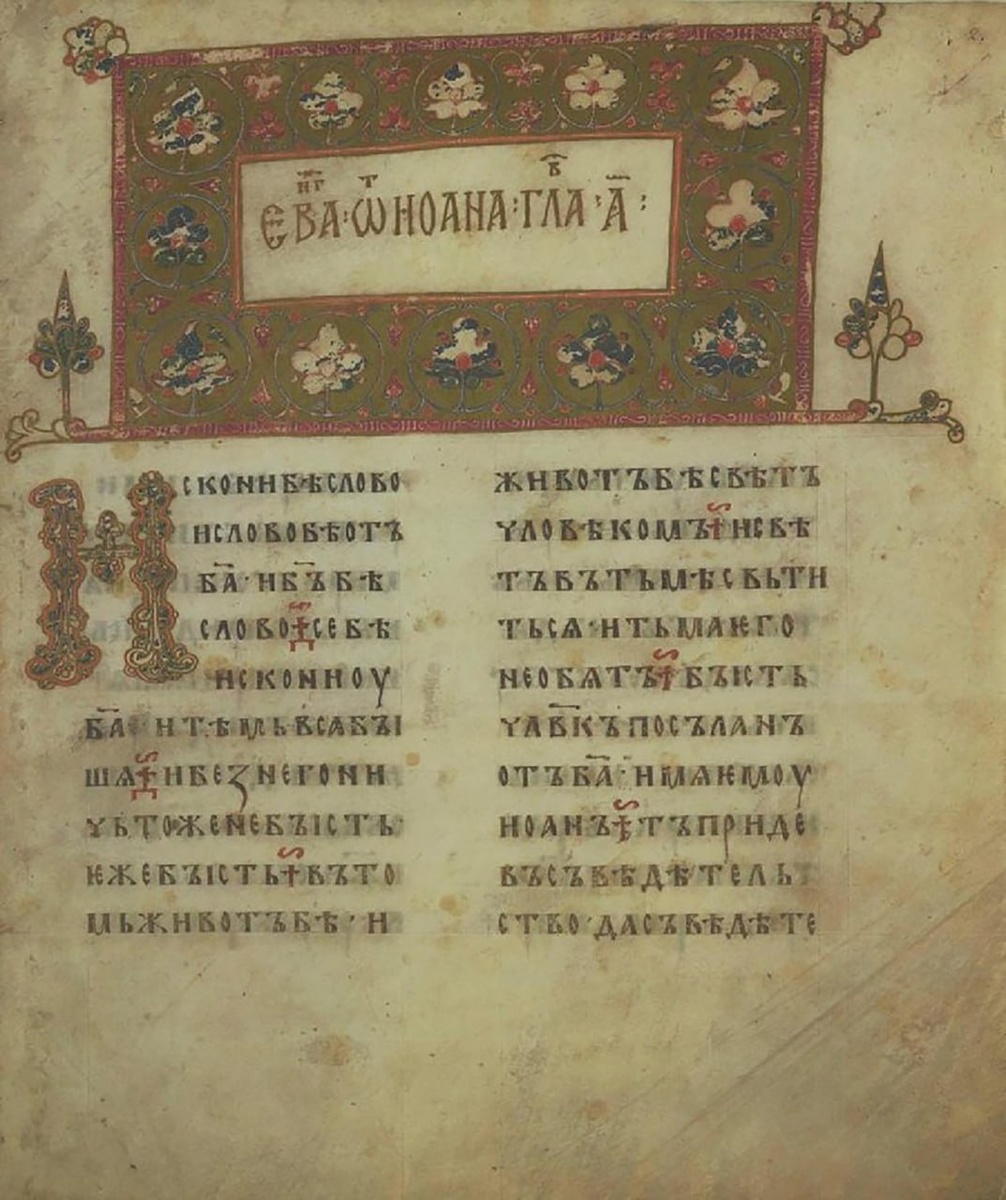 ЕВАⷩ҇ⷢ҇·Ѿ ИОАНА·ГЛАⷡ҇·А҃:
Искони бѣ слово
и слово бѣ отъ
ба҃· и бъ҃ бѣ
слово ·се бѣ
искони оу
ба҃ и тѣмь вьсѧ бы
шѧ· и без него ни
чьтоже не бысть·
ѥже бысть· въ то
мь животъ бѣ· и
животъ бѣ свѣтъ
чловѣкомъ· и свѣ
тъ въ тьмѣ свьти
тьсѧ· и тьма ѥго
не обѧтъ· бысть
чл҃вкъ посъланъ
отъ ба҃· имѧ ѥмоу
иоанъ· тъ приде
въ съвѣдѣтель
ство· да съвѣдѣте